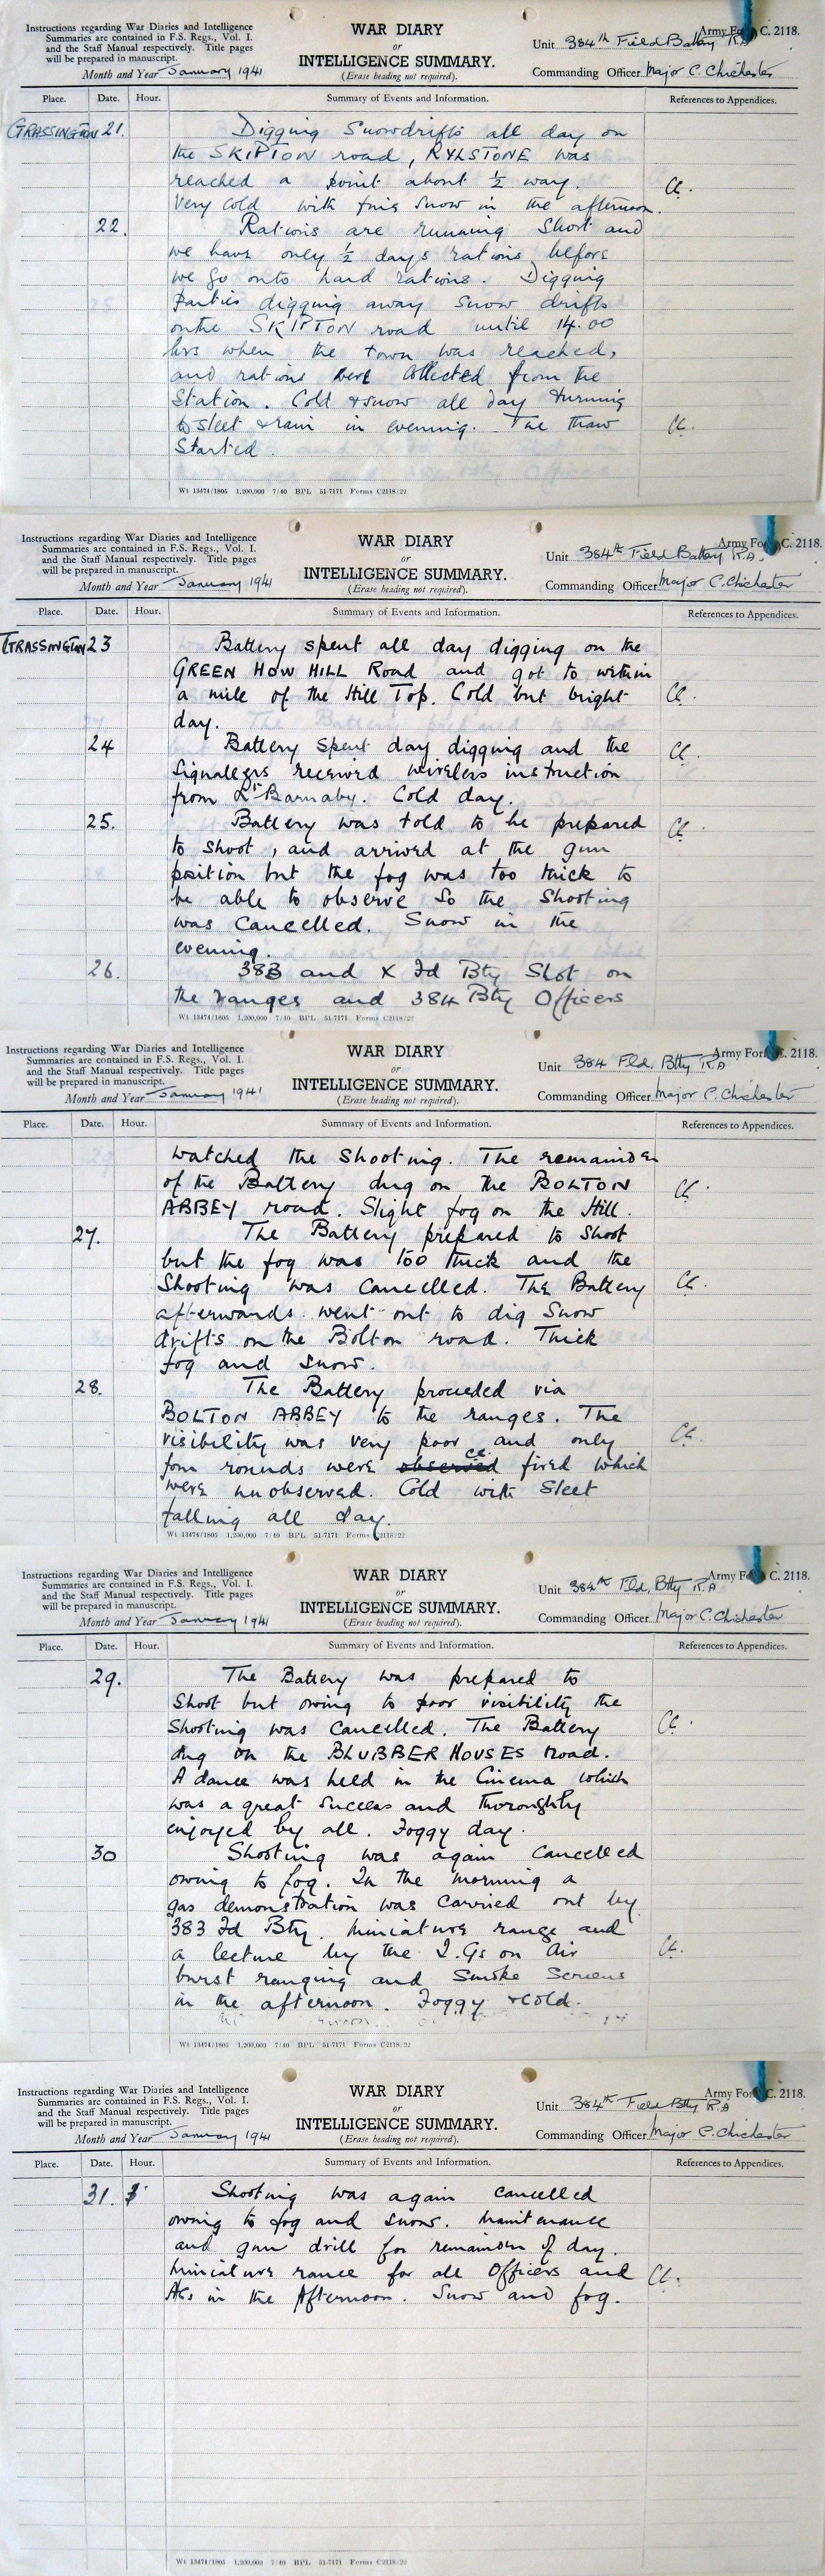 Instructions regarding War Diaries and Intelligence
Summaries are contained in F.S. Regs., Vol. I.
and the Staff Manual respectively. Title pages
will be prepared in manuscript.
Month and Year January 1941
WAR DIARY
or
INTELLIGENCE SUMMARY.
(Erase heading not required).
Army Fo C. 2118.
Unit 384th Field Battery RA
Commanding Officer Major C. Chichester
Place. Date. Hour. Summary of Events and Information. References to Appendices.
GRASSINGTON 21. Digging Snowdrifts all day on
the SKIPTON road, RYLSTONE was
reached a point about ½ way. CC.
Very cold with fine snow in the afternoon.
22. Rations are running short and
we have only ½ days rations before
we go onto hard rations. Digging
Parties digging away snow drifts
on the SKIPTON road until 14.00
hrs when the town was reached,
and rations were collected from the
Station. Cold & snow all day turning
to sleet & rain in evening. The thaw CC.
Started.
Wt 13474/1805 1,200,000 7/40 BPL 51-7171 Forms C2118/22
Instructions regarding War Diaries and Intelligence
Summaries are contained in F.S. Regs., Vol. I.
and the Staff Manual respectively. Title pages
will be prepared in manuscript.
Month and Year January 1941
WAR DIARY
or
INTELLIGENCE SUMMARY.
(Erase heading not required).
Army Fo C. 2118.
Unit 384th Field Battery R.A.
Commanding Officer Major C. Chichester
Place. Date. Hour. Summary of Events and Information. References to Appendices.
GRASSINGTON 23 Battery spent all day digging on the
GREEN HOW HILL Road and got to within
a mile of the Hill Top. Cold but bright CC.
day.
24 Battery spent day digging and the CC.
Signallers received wireless instruction
from Lt Barnaby. Cold day.
25. Battery was told to be prepared CC.
to shoot, and arrived at the gun
position but the fog was too thick to
be able to observe so the shooting
was cancelled. Snow in the
evening.
26. 383 and X Fd Bty Shot on
the ranges and 384 Bty Officers
Wt 13474/1805 1,200,000 7/40 BPL 51-7171 Forms C2118/22
Instructions regarding War Diaries and Intelligence
Summaries are contained in F.S. Regs., Vol. I.
and the Staff Manual respectively. Title pages
will be prepared in manuscript.
Month and Year January 1941
WAR DIARY
or
INTELLIGENCE SUMMARY.
(Erase heading not required).
Army For C. 2118.
Unit 384 Fld. Btty R.A
Commanding Officer Major C. Chichester
Place. Date. Hour. Summary of Events and Information. References to Appendices.
watched the shooting. The remainder
of the Battery dug on the BOLTON
ABBEY road. Slight fog on the Hill. CC.
27. The Battery prepared to shoot
but the fog was too thick and the
Shooting was cancelled. The Battery CC.
afterwards went out to dig snow
drifts on the Bolton road. Thick
fog and snow.
28. The Battery proceeded via
BOLTON ABBEY to the ranges. The
visibility was very poor and only CC.
four rounds were observed CC. fired which
were unobserved. Cold with sleet
falling all day.
Wt 13474/1805 1,200,000 7/40 BPL 51-7171 Forms C2118/22
Instructions regarding War Diaries and Intelligence
Summaries are contained in F.S. Regs., Vol. I.
and the Staff Manual respectively. Title pages
will be prepared in manuscript.
Month and Year January 1941
WAR DIARY
or
INTELLIGENCE SUMMARY.
(Erase heading not required).
Army Fo C. 2118.
Unit 384th Fld, Btty R.A
Commanding Officer Major C. Chichester
Place. Date. Hour. Summary of Events and Information. References to Appendices.
29. The Battery was prepared to
Shoot but owing to poor visibility the
Shooting was cancelled. The Battery CC.
dug on the BLUBBER HOUSES road.
A dance was held in the Cinema which
was a great success and thoroughly
enjoyed by all. Foggy day.
30 Shooting was again cancelled
owing to fog. In the morning a
gas demonstration was carried out by
383 Fd Bty. Miniature range and
a lecture by the I.Gs on Air CC.
burst ranging and Smoke Screens
in the afternoon. Foggy & cold.
Wt 13474/1805 1,200,000 7/40 BPL 51-7171 Forms C2118/22
Instructions regarding War Diaries and Intelligence
Summaries are contained in F.S. Regs., Vol. I.
and the Staff Manual respectively. Title pages
will be prepared in manuscript.
Month and Year January 1941
WAR DIARY
or
INTELLIGENCE SUMMARY.
(Erase heading not required).
Army For C. 2118.
Unit 384th Field Btty R.A
Commanding Officer Major C. Chichester
Place. Date. Hour. Summary of Events and Information. References to Appendices.
31. Shooting was again cancelled
owing to fog and snow. Maintenance
and gun drill for remainder of day.
Miniature rance for all Officers and CC.
Aks in the Afternoon. Snow and fog.
Wt 13474/1805 1,200,000 7/40 BPL 51-7171 Forms C2118/22